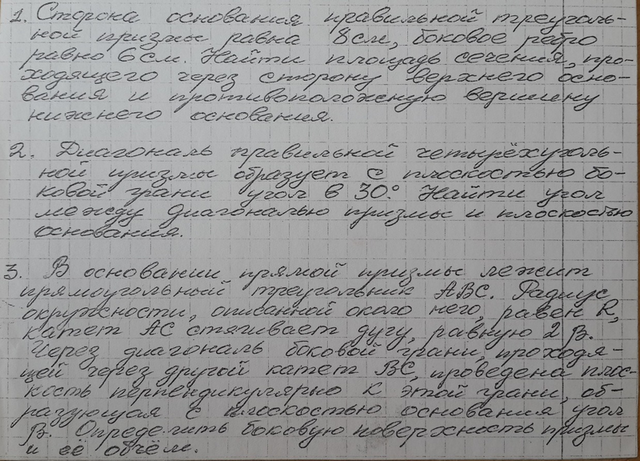 1. Сторона основания правильной треуголь-
ной призмы равна 8 см, боковое ребро
равно 6 см. Найти площадь сечения, про-
ходящего через сторону верхнего осно-
вания и противоположную вершину
нижнего основания.
2. Диагональ правильной четырёхуголь-
ной призмы образует с плоскостью бо-
ковой грани угол в 30°. Найти угол
между диагональю призмы и плоскостью
основания.
3. В основании прямой призмы лежит
прямоугольный треугольник АВС. Радиус
окружности, описанной около него, равен R,
катет АС стягивает дугу, равную 2β.
Через диагональ боковой грани, проходя-
щей через другой катет ВС, проведена плос-
кость перпендикулярно к этой грани, об-
разующая с плоскостью основания угол
β. Определить боковую поверхность призмы
и её объём.